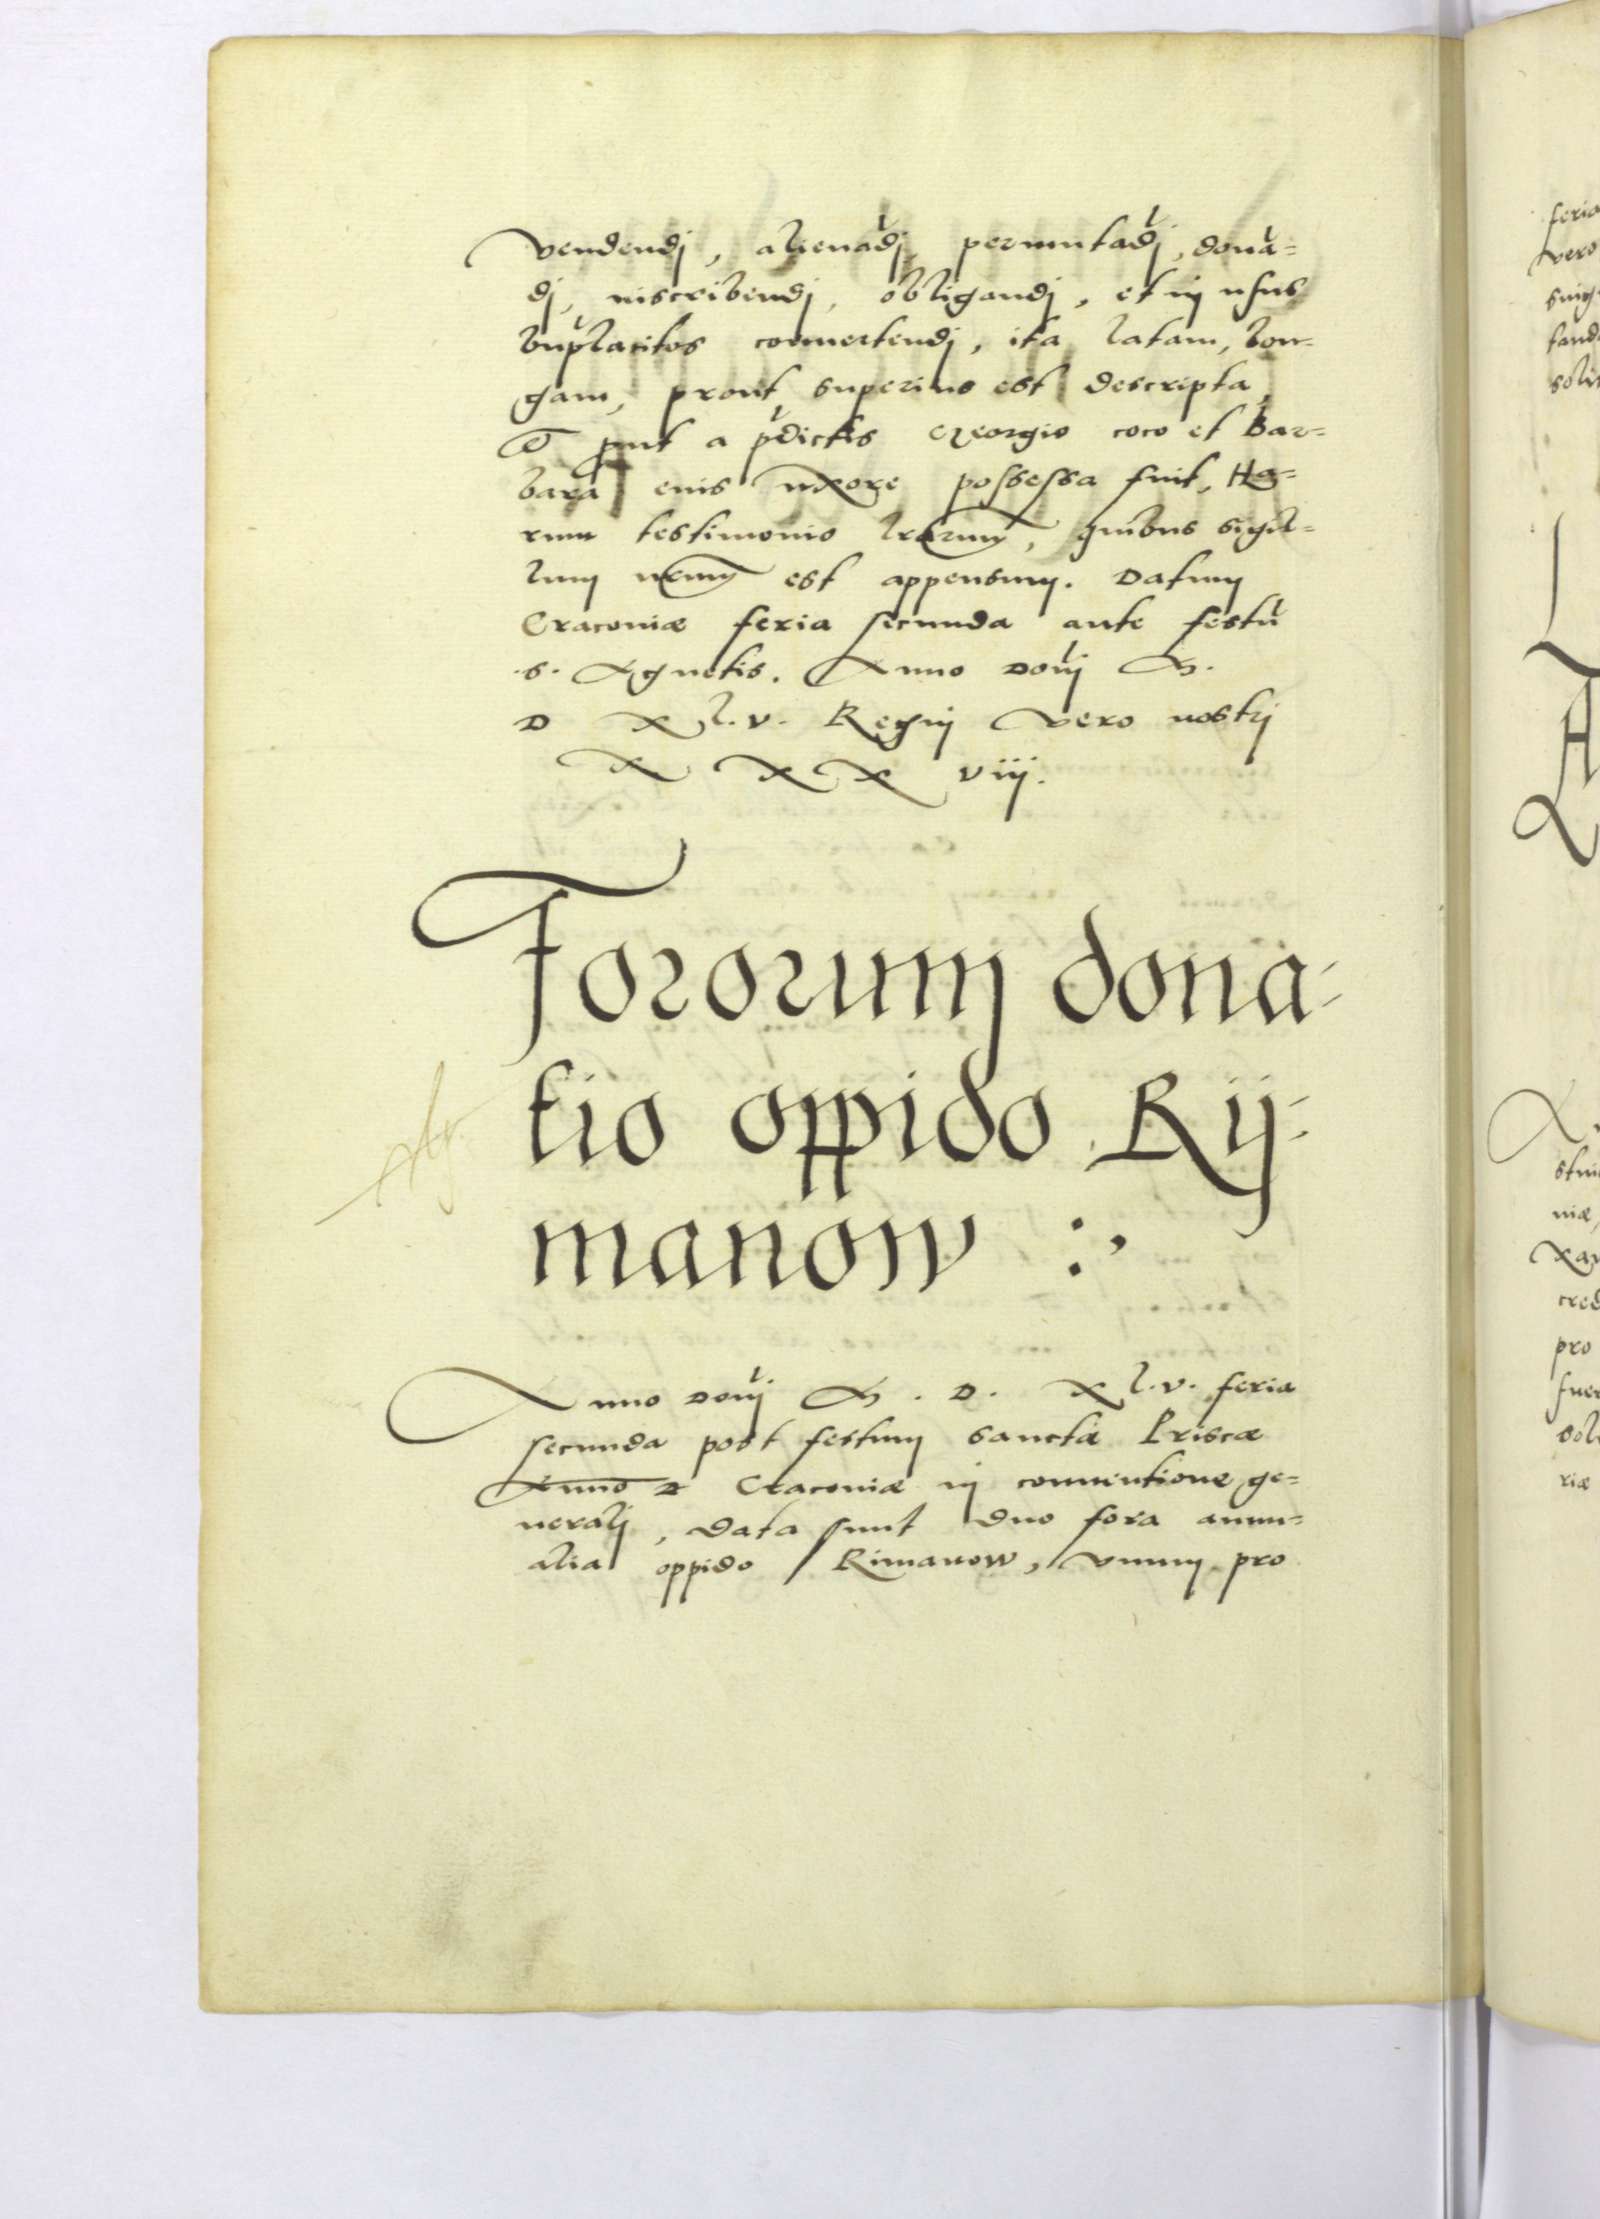 vendendj, alienãdj, permutãdj, donã=
dj, inscribendj, obligandj, et in usus
bñplacitos convertendj, ita latam, lon=
gam, prout superius est descripta,
prout a p̃dictis Georgio coco et Bar=
bara eius uxore possessa fuit, Ha=
rum testimonio lrarum, quibus sigil=
lum nrum est appensum. Datum
Cracoviæ feria secunda ante festũ
.s. Agnetis. Anno Domj M.
D XL.V. Regnj vero nostrj
XXXviij.
Fororum dona=
tio oppido Rij=
manow :,
Anno Domj M. D. XL.V. feria
secunda post festum sanctæ Priscæ
Anno D Cracoviæ in conventione ge=
neralj, data sunt duo fora annu=
alia oppido Rimanow, vnum pro
feria
vero
tand
A
niæ,
cred
pro
riæ